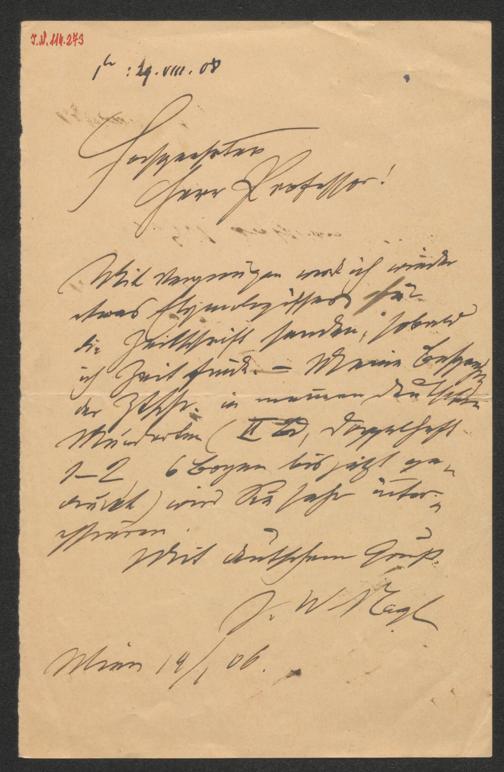 I.N. 114.273
: 29. VIII. 08
Hochgeehrter
Herr Professor!
Mit Vergnügen werd ich wieder
etwas Etymologisches für
die Zeitschrift senden, sobald
ich Zeit finde. – Meine Besprechg
der Ztschr. in meinen Deutschen
Mundarten (II Bd, Doppelheft
1–2, 6 Bogen bis jetzt ge-
druckt) wird Sie sehr inter-
essieren.
Mit deutschem Gruß
J. W. Nagl
Wien 14/1 06.